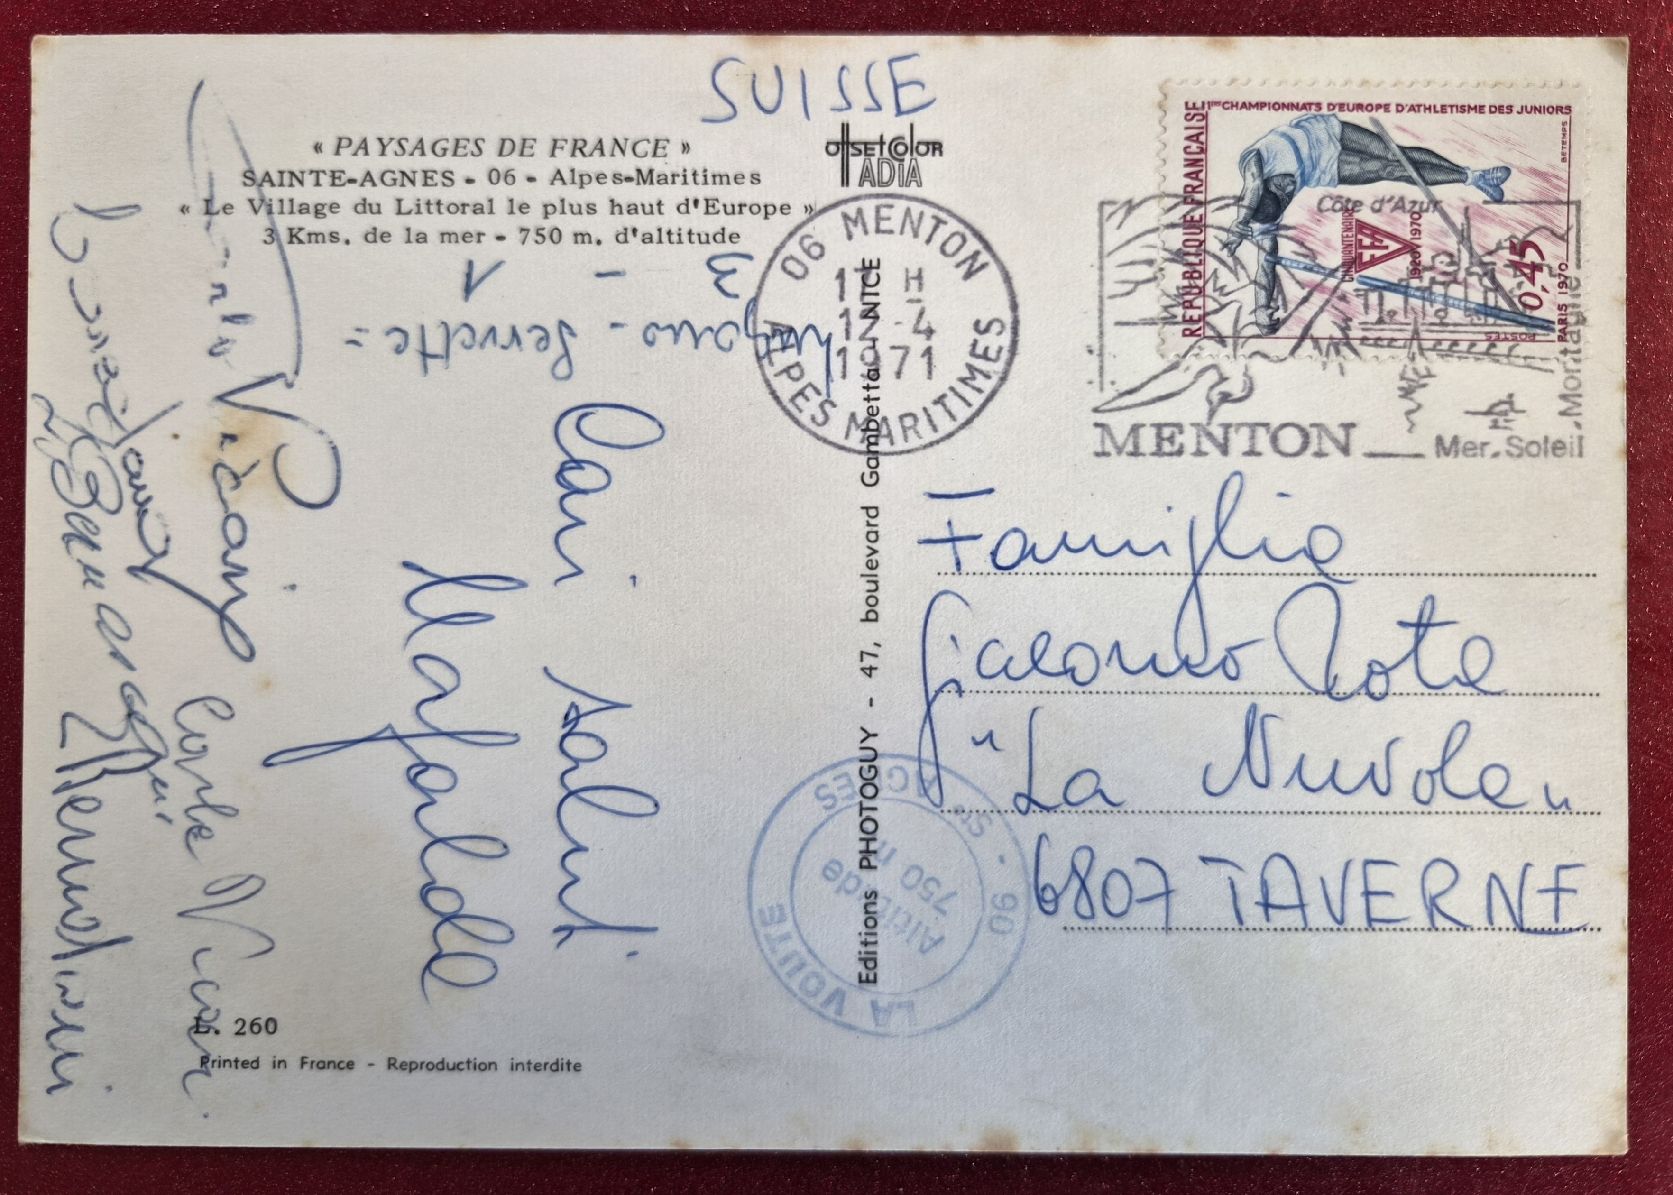 SUISSE
« PAYSAGES DE FRANCE »
SAINTE-AGNES - 06 - Alpes-Maritimes
« Le Village du Littoral le plus haut d'Europe »
3 Kms. de la mer - 750 m. d'altitude
offsetcolor
ADIA
1ers CHAMPIONNATS D'EUROPE D'ATHLETISME DES JUNIORS
REPUBLIQUE FRANCAISE
BETEMPS
CINQUANTENAIRE
FFA
1920/1970
0,45
PARIS 1970
POSTES
06 MENTON
H
-4
1971
ALPES MARITIMES
Côte d'Azur
MENTON
Mer. Soleil. Montagne
Lugano - Servette =
3 - 1
Cari saluti
Mafalda
Editions PHOTOGUY - 47, boulevard Gambetta - NICE
Famiglia
Giacomo Rota
"La Nuvola"
6807 TAVERNE
LA VOUTE
Ste AGNES
06
Altitude
750 m
L. 260
Printed in France - Reproduction interdite